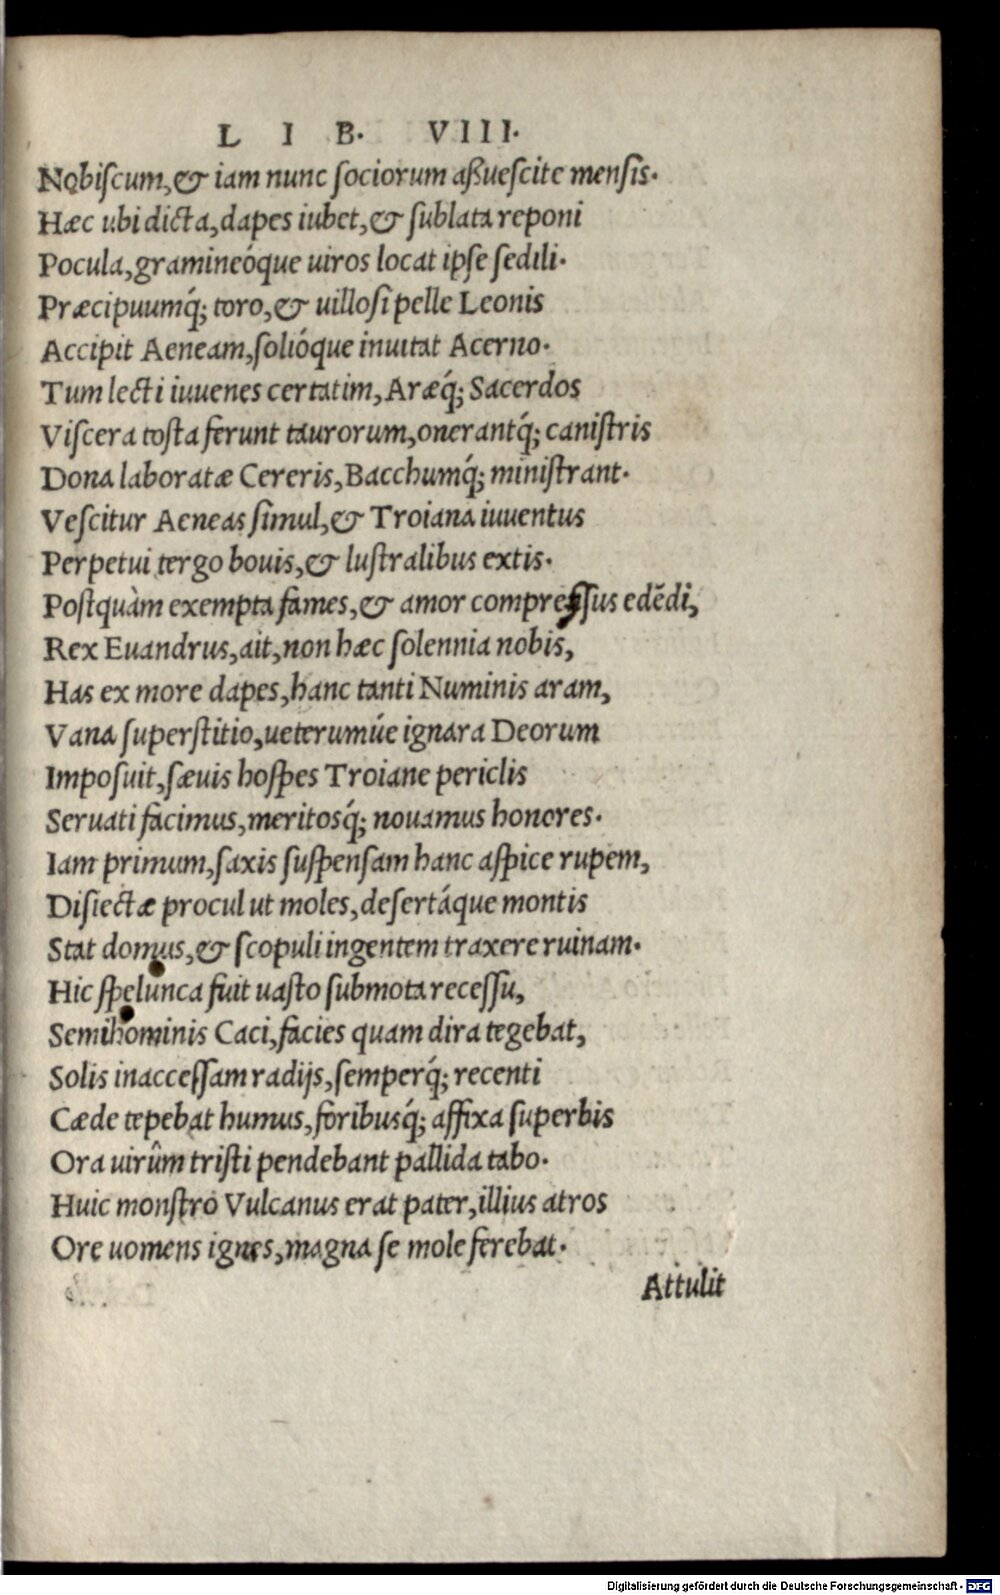 L I B. VIII.
Nobiscum, & iam nunc sociorum aßuescite mensis.
Hæc ubi dicta, dapes iubet, & sublata reponi
Pocula, gramineóque uiros locat ipse sedili.
Præcipuumq́; toro, & uillosi pelle Leonis
Accipit Aeneam, solióque inuitat Acerno.
Tum lecti iuuenes certatim, Aræq́; Sacerdos
Viscera tosta ferunt taurorum, onerantq́; canistris
Dona laboratæ Cereris, Bacchumq́; ministrant.
Vescitur Aeneas simul, & Troiana iuuentus
Perpetui tergo bouis, & lustralibus extis.
Postquàm exempta fames, & amor compressus edēdi,
Rex Euandrus, ait, non hæc solennia nobis,
Has ex more dapes, hanc tanti Numinis aram,
Vana superstitio, ueterumúe ignara Deorum
Imposuit, sæuis hospes Troiane periclis
Seruati facimus, meritosq́; nouamus honores.
Iam primum, saxis suspensam hanc aspice rupem,
Disiectæ procul ut moles, desertáque montis
Stat domus, & scopuli ingentem traxere ruinam.
Hic spelunca fuit uasto submota recessu,
Semihominis Caci, facies quam dira tegebat,
Solis inaccessam radijs, semperq́; recenti
Cæde tepebat humus, foribusq́; affixa superbis
Ora uirûm tristi pendebant pallida tabo.
Huic monstro Vulcanus erat pater, illius atros
Ore uomens ignes, magna se mole ferebat.
Attulit
Digitalisierung gefördert durch die Deutsche Forschungsgemeinschaft - DFG